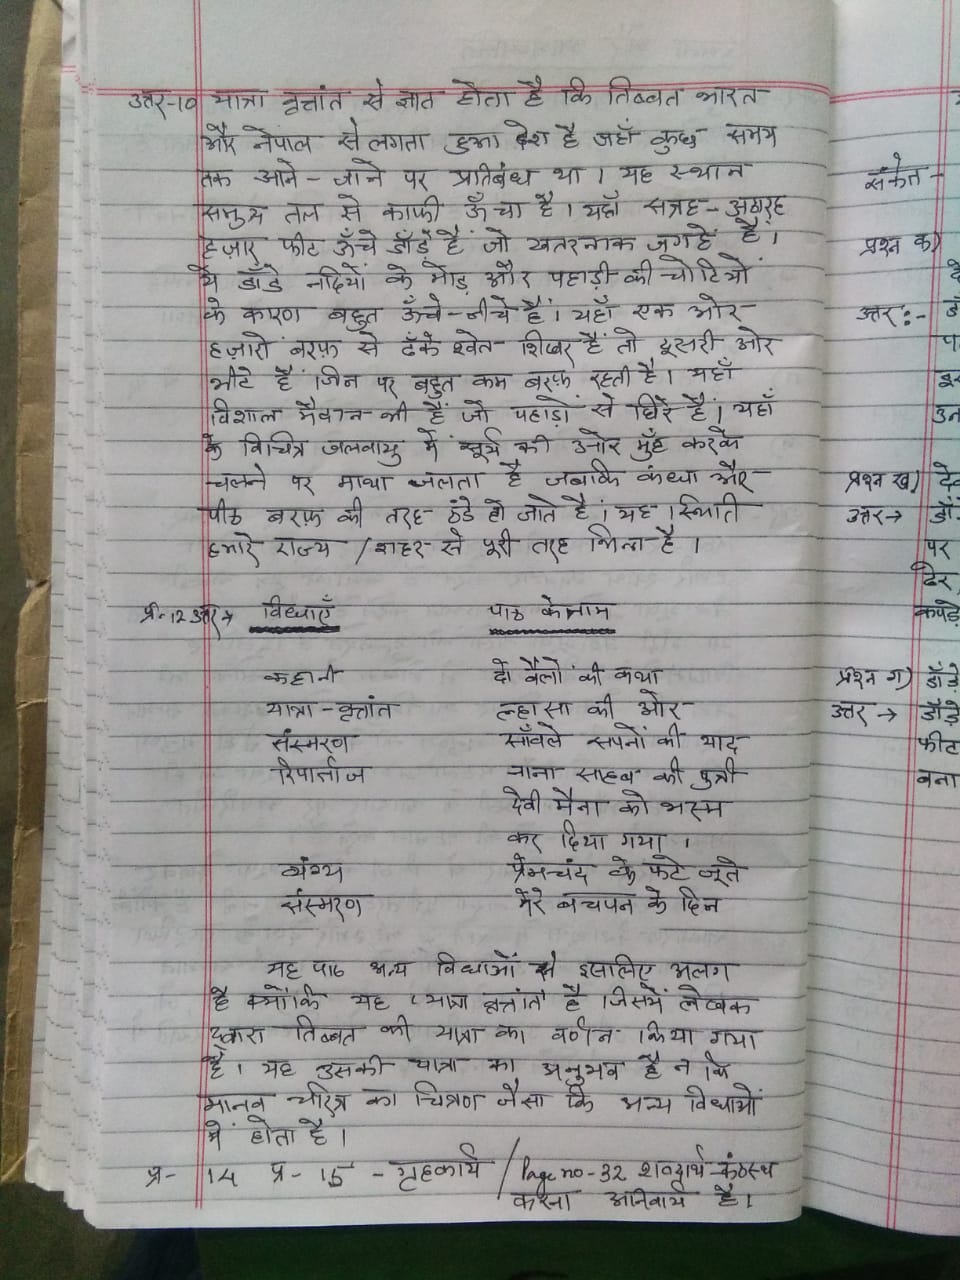 उत्तर-10 यात्रा वृत्तांत से ज्ञात होता है कि तिब्बत भारत
और नेपाल से लगता हुआ देश है जहाँ कुछ समय
तक आने-जाने पर प्रतिबंध था। यह स्थान
समुद्र तल से काफी ऊँचा है। यहाँ सत्रह-अठारह
हज़ार फीट ऊँचे डाँड़े हैं जो खतरनाक जगहें हैं।
ये डाँडे नदियों के मोड़ और पहाड़ी की चोटियों
के कारण बहुत ऊँचे-नीचे हैं। यहाँ एक ओर
हज़ारों बरफ़ से ढँके श्वेत शिखर हैं तो दूसरी ओर
भीटे हैं जिन पर बहुत कम बरफ़ रहती है। यहाँ
विशाल मैदान भी हैं जो पहाड़ों से घिरे हैं। यहाँ
के विचित्र जलवायु में सूर्य की ओर मुँह करके
चलने पर माथा जलता है जबकि कंधा और
पीठ बरफ़ की तरह ठंडे हो जाते हैं। यह स्थिति
हमारे राज्य /शहर से पूरी तरह भिन्न है।
प्र-12 उत्तर→ विधाएँ पाठ के नाम
कहानी दो बैलों की कथा
यात्रा-वृत्तांत ल्हासा की ओर
संस्मरण साँवले सपनों की याद
रिपोर्ताज नाना साहब की पुत्री
देवी मैना को भस्म
कर दिया गया।
व्यंग्य प्रेमचंद के फटे जूते
संस्मरण मेरे बचपन के दिन
यह पाठ अन्य विधाओं से इसलिए अलग
है क्योंकि यह 'यात्रा वृत्तांत' है जिसमें लेखक
द्वारा तिब्बत की यात्रा का वर्णन किया गया
है। यह उसकी यात्रा का अनुभव है न कि
मानव चरित्र का चित्रण जैसा कि अन्य विधाओं
में होता है।
प्र- 14 प्र- 15 - गृहकार्य / Page no-32 शब्दार्थ कंठस्थ
करना अनिवार्य है।
संकेत-
प्रश्न क)
उत्तर:-
प्रश्न ख)
उत्तर→ डाँ
पर
कपड़े
प्रश्न ग) डाँड़े
उत्तर → डाँड़े
फीट
बना